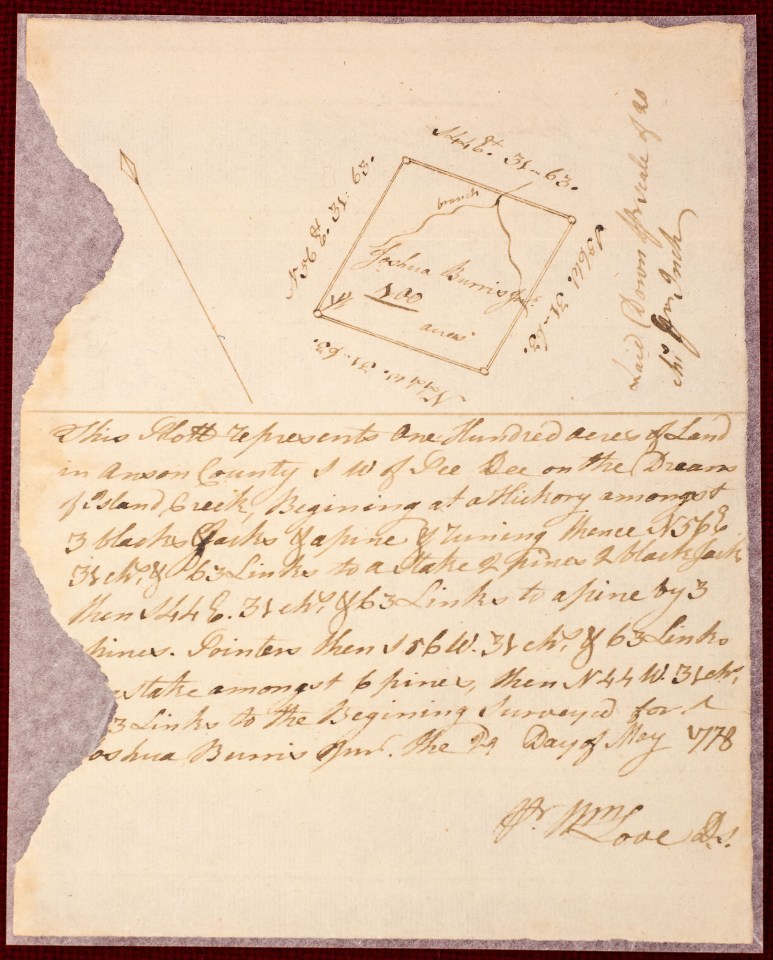 S 44 E. 31 - 63.
N 56 E. 31 - 63.
branch
Joshua Burris Junr.
100
acres
S 56 W. 31 - 63.
N 44 W. 31 - 63.
Laid Down pr. scale of 20
chs. pr. Inch
This Plott represents One Hundred acres of Land
in Anson County S W of Pee Dee on the Dreans
of Island Creik, Begining at a Hickory amongst
3 blacks Jacks & a pine & runing thence N 56 E
31 chs. & 63 Links to a stake 2 pines 2 black Jack
then S 44 E. 31 chs. & 63 Links to a pine by 3
pines. Pointers then S 56 W. 31 chs. & 63 Links
stake amongst 6 pines, then N 44 W. 31 chs.
3 Links to the Begining Surveyed for
oshua Burris Junr. the Day of May 1778
Pr. Wm Love D.S.